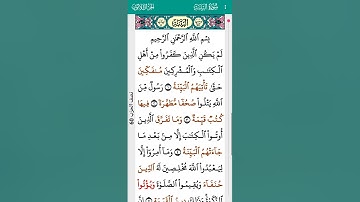 سُورَةُ البَيِّنَةِ
الجُزْءُ الثَّلَاثُونَ
بِسْمِ ٱللَّهِ ٱلرَّحْمَٰنِ ٱلرَّحِيمِ
لَمْ يَكُنِ ٱلَّذِينَ كَفَرُوا۟ مِنْ أَهْلِ
ٱلْكِتَٰبِ وَٱلْمُشْرِكِينَ مُنفَكِّينَ
حَتَّىٰ تَأْتِيَهُمُ ٱلْبَيِّنَةُ ۝ رَسُولٌ مِّنَ
ٱللَّهِ يَتْلُوا۟ صُحُفًا مُّطَهَّرَةً ۝ فِيهَا
كُتُبٌ قَيِّمَةٌ ۝ وَمَا تَفَرَّقَ ٱلَّذِينَ
أُوتُوا۟ ٱلْكِتَٰبَ إِلَّا مِنۢ بَعْدِ مَا
جَآءَتْهُمُ ٱلْبَيِّنَةُ ۝ وَمَآ أُمِرُوٓا۟ إِلَّا
لِيَعْبُدُوا۟ ٱللَّهَ مُخْلِصِينَ لَهُ ٱلدِّينَ
حُنَفَآءَ وَيُقِيمُوا۟ ٱلصَّلَوٰةَ وَيُؤْتُوا۟